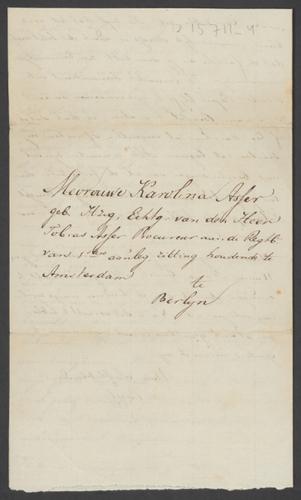 15711-4
Mevrouwe Karolina Asser
geb. King, Echtg. van den Heer
Tobias Asser Procureur aan de Regtb.
van 1ste aanleg, zitting houdende te
Amsterdam
te
Berlyn